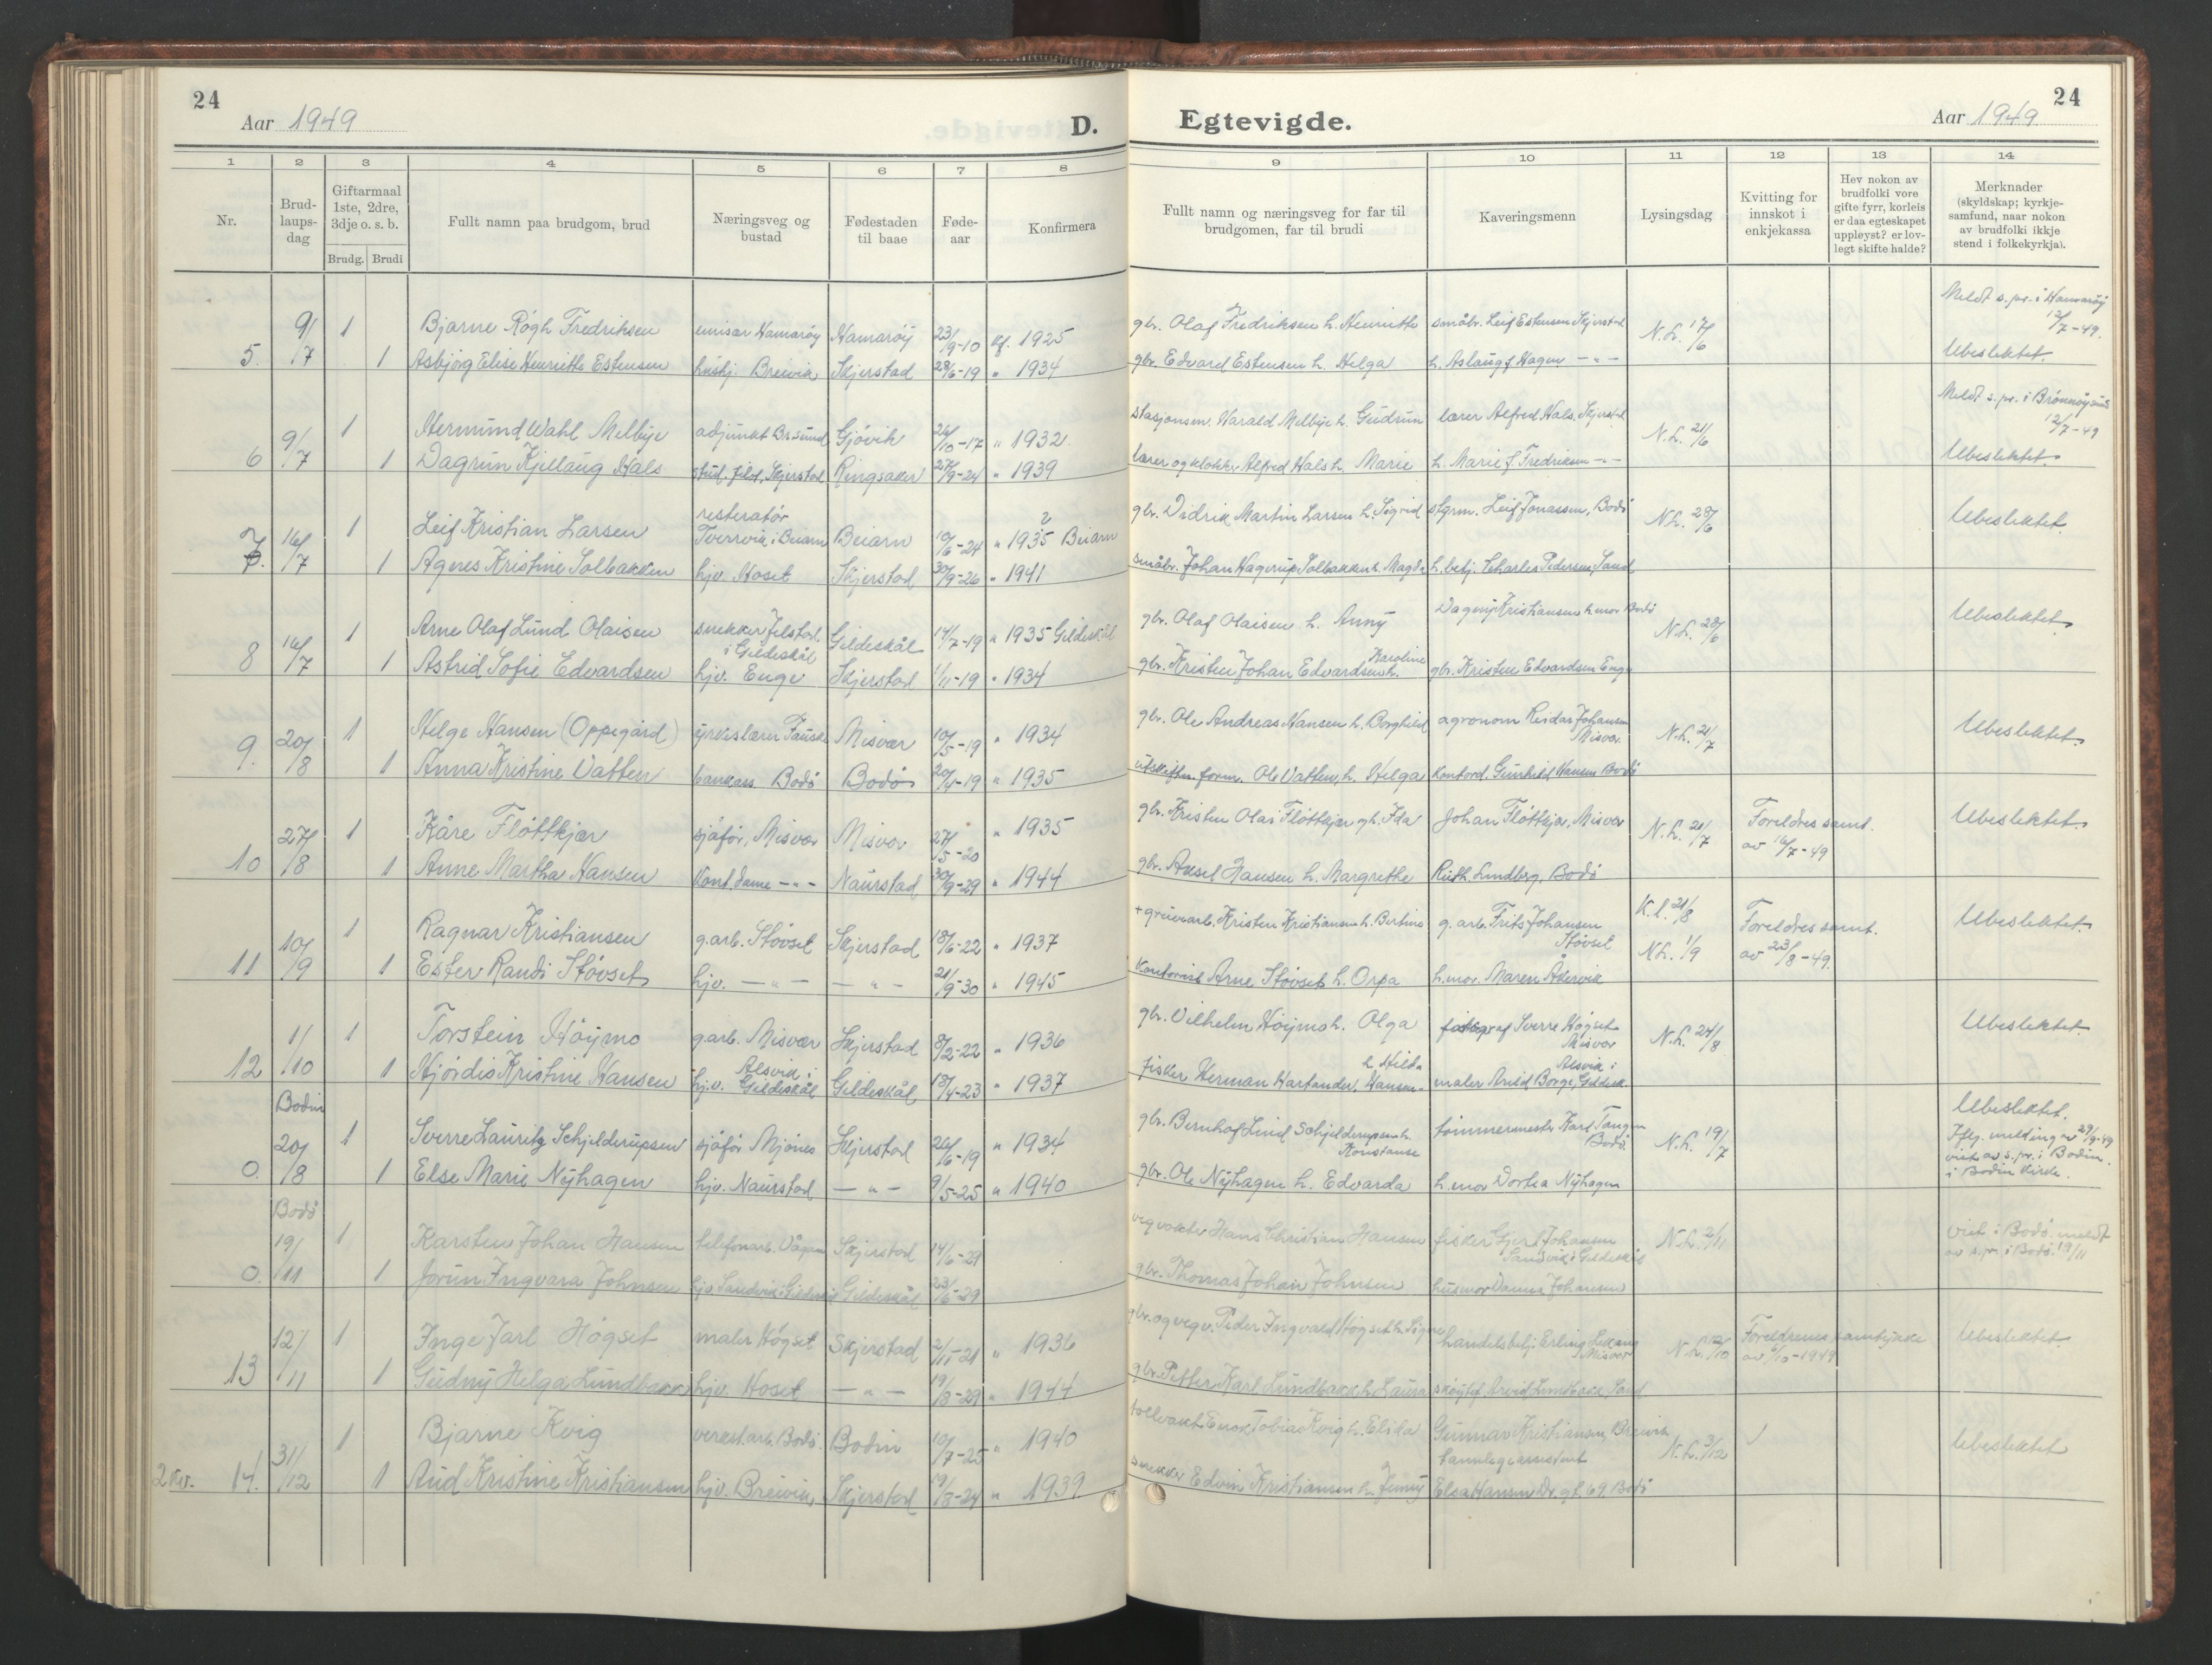 24
Aar 1949
D.
1 2 3 4 5 6 7 8
Nr.
Brud-
laups-
dag
Giftarmaal
1ste, 2dre,
3dje o. s. b.
Brudg. Brudi
Fullt namn paa brudgom, brud
Næringsveg og
bustad
Fødestaden
til baae
Føde-
aar
Konfirmera
5. 9/7 1 Bjarne Rögh Fredriksen emisær Hamarøy Hamarøy 23/9-10 kf. 1925
1 Asbjörg Elise Henriette Estensen hushj. Breivik Skjerstad 28/6-19 " 1934
6 9/7 1 Hermund Wahl Melbye adjunkt Br.sund Gjövik 26/10-17 " 1932
1 Dagrun Kjellaug Hals stud. filol. Skjerstad Ringsaker 27/9-24 " 1939
7. 16/7 1 Leif Kristian Larsen resteratör Tverrvik i Beiarn Beiarn 10/6-24 " 1935 Beiarn
1 Agnes Kristine Solbakken hjv. Hoset Skjerstad 30/9-26 " 1941
8 16/7 1 Arne Olaf Lund Olaisen snekker Jelstad i Gildeskål Gildeskål 14/7-19 " 1935 Gildeskål
1 Astrid Sofie Edvardsen hjv. Enge Skjerstad 1/11-19 " 1934
9. 20/8 1 Helge Hansen (Oppegård) yrkeslærer Fauske Misvær 10/5-19 " 1934
1 Anna Kristine Vatten bankass. Bodö Bodö 20/4-19 " 1935
10 27/8 1 Kåre Flöttkjær sjåför, Misvær Misvær 27/5-20 " 1935
1 Anne Martha Hansen Kont.dame -"- Naurstad 30/9-29 " 1944
11 10/9 1 Ragnar Kristiansen g.arb. Stövset Skjerstad 18/6-22 " 1937
1 Ester Randi Stövset hjv. -"- -"- 21/9-30 " 1945
12 1/10 1 Torstein Höymo g.arb. Misvær Skjerstad 8/2-22 " 1936
1 Hjördis Kristine Hansen hjv. Alsvik i Gildeskål Gildeskål 13/4-23 " 1937
Bodin
0. 20/8 1 Sverre Lauritz Schjelderupsen sjåför Mjönes Skjerstad 26/6-19 " 1934
1 Else Marie Nyhagen hjv. Naurstad -"- 9/5-25 " 1940
Bodö
0. 19/11 1 Karsten Johan Hansen telefonarb. Vågan Skjerstad 14/6-29
1 Jorun Ingvara Johnsen hjv. Sandvik i Gildeskål Gildeskål 23/6-29
13 12/11 1 Inge Jarl Högset maler Högset Skjerstad 2/11-21 " 1936
1 Gudny Helga Lundbakk hjv. Hoset -"- 19/8-29 " 1944
2 kv. 14. 31/12 1 Bjarne Kvig verkst.arb. Bodö Bodin 10/7-25 " 1940
1 Aud Kristine Kristiansen hjv. Breivik Skjerstad 19/8-24 " 1939
24
Egtevigde.
Aar 1949
9 10 11 12 13 14
Fullt namn og næringsveg for far til
brudgomen, far til brudi
Kaveringsmenn
Lysingsdag
Kvitting for
innskot i
enkjekassa
Hev nokon av
brudfolki vore
gifte fyrr, korleis
er daa egteskapet
uppløyst? er lov-
legt skifte halde?
Merknader
(skyldskap; kyrkje-
samfund, naar nokon
av brudfolki ikkje
stend i folkekyrkja).
gbr. Olaf Fredriksen h. Henriette småbr. Leif Estensen Skjerstad N.L. 17/6 Meldt s.pr. i Hamarøy 12/7-49.
gbr. Edvard Estensen h. Helga h. Aslaug J. Hagen -"- Ubeslektet.
stasjonsm. Harald Melbye h. Gudrun lærer Alfred Hals, Skjerstad N.L. 21/6 Meldt s.pr. i Brönnöysund 12/7-49
lærer og klokker Alfred Hals h. Marie h. Marie J. Fredriksen -"- Ubeslektet.
gbr. Didrik Martin Larsen h. Sigrid st.grm. Leif Jonassen, Bodö N.L. 28/6 Ubeslektet.
småbr. Johan Hagerup Solbakken h. Magda h.betj. Charles Pedersen, Sand
gbr. Olaf Olaisen h. Anny Dagny Kristiansen h.mor Bodö N.L. 28/6 Ubeslektet.
gbr. Kristen Johan Edvardsen h. Karoline gbr. Kristen Edvardsen Enge
gbr. Ole Andreas Hansen h. Borghild agronom Reidar Johansen Misvær N.L. 21/7 Ubeslektet.
utskiftn.form. Ole Vatten, h. Helga Kontord. Gunhild Hansen Bodö
gbr. Kristen Olai Flöttkjær og h. Ida Johan Flöttkjær, Misvær N.L. 21/7 Foreldres samt. av 16/7-49 Ubeslektet.
gbr. Aksel Hansen h. Margrethe Ruth Lundberg, Bodö
+ gruvearb. Kristen Kristiansen h. Bertine g.arb. Frits Johansen Stövset K.l. 21/8 N.L. 1/9 Foreldres samt. av 23/8-49. Ubeslektet.
Kontorist Arne Stövset h. Orpa h.mor. Maren Åkervik
gbr. Vilhelm Höymo h. Olga fotograf Sverre Högset Misvær N.L. 24/8 Ubeslektet.
fisker Herman Hartander Hansen h. Hilda maler Arild Borge, Alsvik i Gildesk.
gbr. Bernhof Lind Schjelderupsen h. Konstanse tömmermester Karl Tangen Bodö. N.L. 19/7 Ubeslektet. Iflg. melding av 27/9-49 viet av s.pr. i Bodin i Bodin Kirke.
gbr. Ole Nyhagen h. Edvarda h.mor Dortea Nyhagen
vegvokter Hans Christian Hansen fisker Gjert Johansen Sandvik i Gildeskål N.L. 2/11 viet i Bodö. meldt av s.pr. i Bodö. 19/11
gbr. Thomas Johan Johnsen husmor Danna Johansen
gbr. og vegv. Peder Ingvald Högset h. Signe handelsbetj. Erling Misvær N.L. 12/10 Foreldrenes samtykke av 6/10-1949 Ubeslektet
gbr. Petter Karl Lundbakk h. Laura Arvid Lundbakk, Sand
tollvakt Enok Tobias Kvig h. Elida Gunnar Kristiansen Breivik N.L. 3/12 Ubeslektet
snekker Edvin Kristiansen h. Jenny tannlegeassistent Elsa Hansen Dr. gt. 69. Bodö